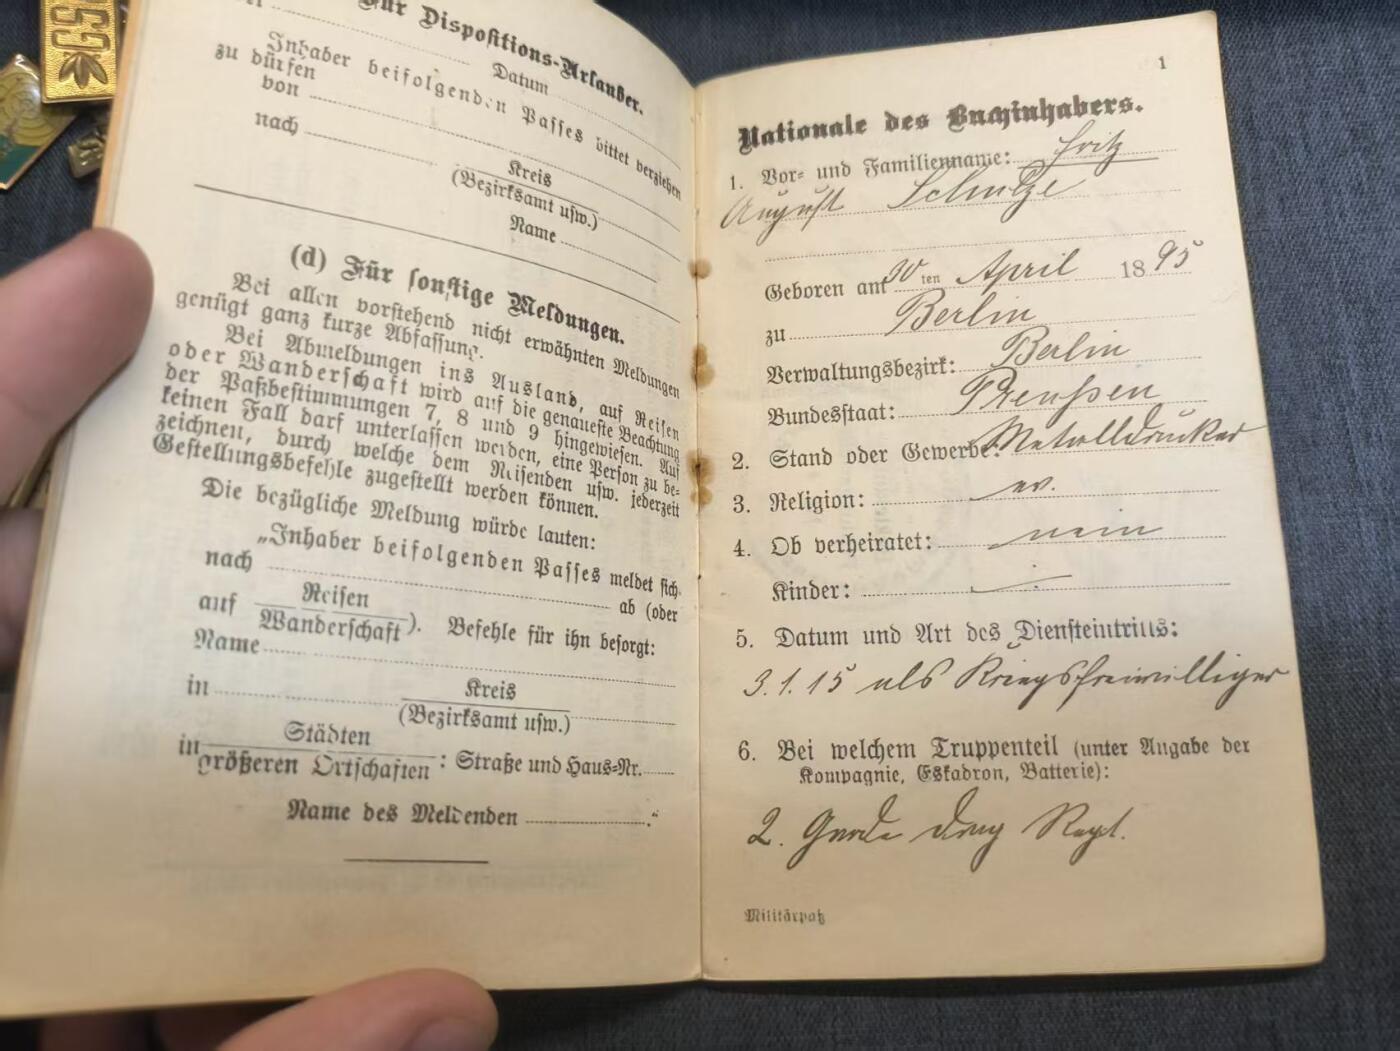 Für Dispositions-Urlauber.
Datum
Inhaber beifolgenden Passes bittet verziehen
zu dürfen
von
nach
Kreis
(Bezirksamt usw.)
Name
(d) Für sonstige Meldungen.
Bei allen vorstehend nicht erwähnten Meldungen
genügt ganz kurze Abfassung.
Bei Abmeldungen ins Ausland, auf Reisen
oder Wanderschaft wird auf die genaueste Beachtung
der Paßbestimmungen 7, 8 und 9 hingewiesen. Auf
keinen Fall darf unterlassen werden, eine Person zu be-
zeichnen, durch welche dem Reisenden usw. jederzeit
Gestellungsbefehle zugestellt werden können.
Die bezügliche Meldung würde lauten:
„Inhaber beifolgenden Passes meldet sich
nach ab (oder
auf Reisen
Wanderschaft). Befehle für ihn besorgt:
Name
in Kreis
(Bezirksamt usw.)
in Städten
größeren Ortschaften : Straße und Haus-Nr.
Name des Meldenden ."
1
Nationale des Buchinhabers.
1. Vor- und Familienname: Fritz
August Schulze
Geboren am 30 ten April 1895
zu Berlin
Verwaltungsbezirk: Berlin
Bundesstaat: Preußen
2. Stand oder Gewerbe: Metalldrucker
3. Religion: ev.
4. Ob verheiratet: nein
Kinder:
5. Datum und Art des Diensteintritts:
3.1.15 als Kriegsfreiwilliger
6. Bei welchem Truppenteil (unter Angabe der
Kompagnie, Eskadron, Batterie):
2. Garde Drag Regt.
Militärpaß